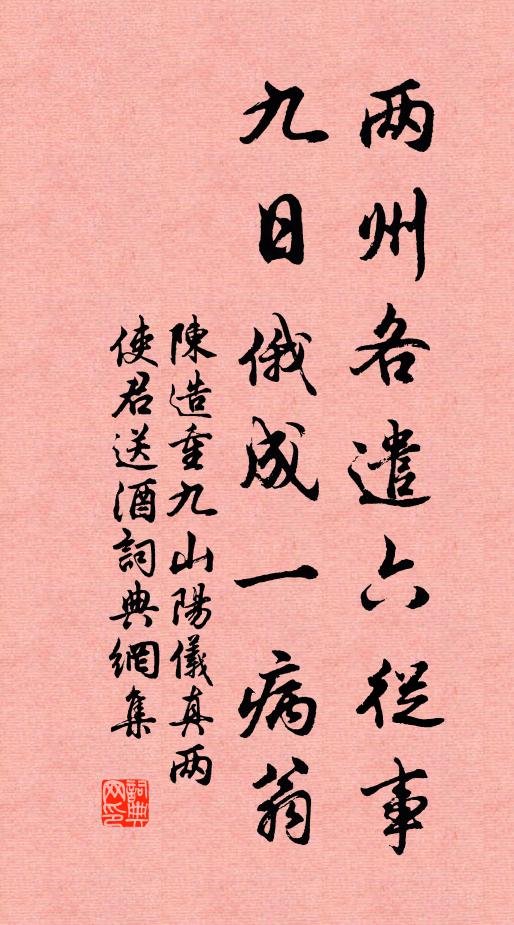 两州各遣六从事
九日俄成一病翁
陳造重九山陽儀真两
使君送酒詞典網集
詞典网印